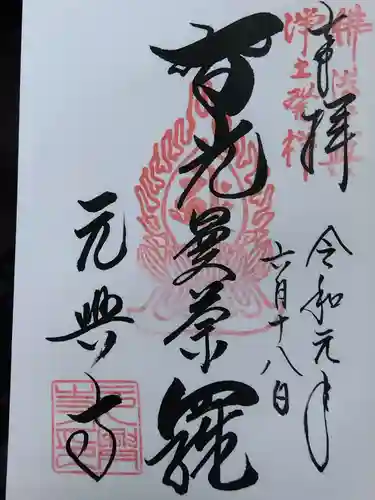 奉拝
佛法元興
浄土發祥
令和元年
六月十八日
智光曼荼羅
元興寺